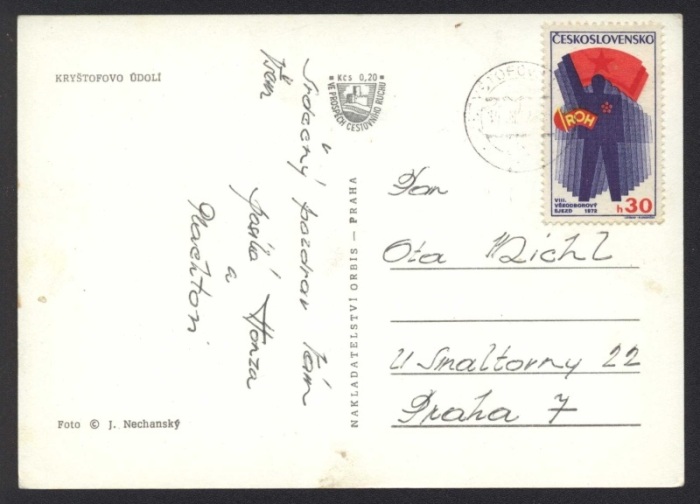 KRYŠTOFOVO ÚDOLÍ
Srdečný pozdrav Vám
všem
posílá Honza
a
Machtovi
Foto © J. Nechanský
Kčs 0,20
VE PROSPĚCH CESTOVNÍHO RUCHU
NAKLADATELSTVÍ ORBIS — PRAHA
ČESKOSLOVENSKO
ROH
VIII.
VŠEODBOROVÝ
SJEZD 1972
h30
Pan
Ota Richl
U Smaltovny 22
Praha 7